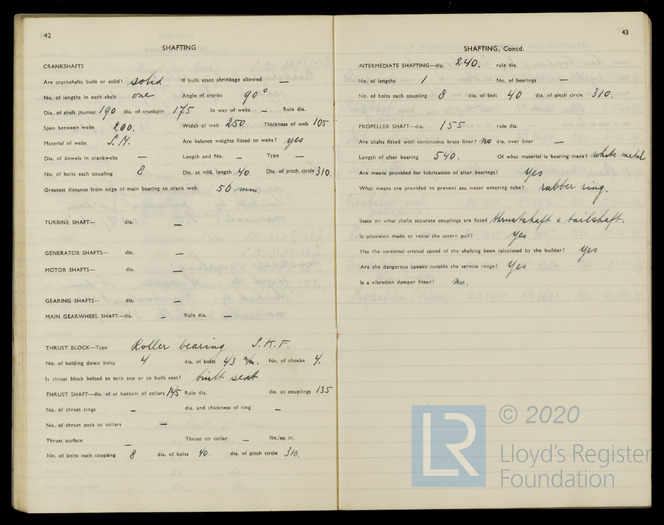 42
SHAFTING
CRANKSHAFTS
Are crankshafts built or solid? solid If built state shrinkage allowed —
No. of lengths in each shaft one Angle of cranks 90°
Dia. of shaft journal 190 dia. of crankpin 175 In way of webs - Rule dia.
Span between webs 200. Width of web 250 Thickness of web 105
Material of webs S.M. Are balance weights fitted to webs? yes
Dia. of dowels in crankwebs — Length and No. — Type —
No. of bolts each coupling 8 Dia. at mid. length 40 Dia. of pitch circle 310.
Greatest distance from edge of main bearing to crank web 50 mm.
TURBINE SHAFT— dia. —
GENERATOR SHAFTS— dia. —
MOTOR SHAFTS— dia. —
GEARING SHAFTS— dia. —
MAIN GEARWHEEL SHAFT—dia. - Rule dia. —
THRUST BLOCK—Type Roller bearing S.K.F.
No. of holding down bolts 4 dia. of bolts 43 m/m. No. of chocks 4.
Is thrust block bolted to tank top or to built seat? built seat
THRUST SHAFT—dia. of at bottom of collars 145 Rule dia. dia. at couplings 135
No. of thrust rings — dia. and thickness of ring —
No. of thrust pads or collars —
Thrust surface — Thrust on collar — lbs./sq. in.
No. of bolts each coupling 8 dia. of bolts 40. dia. of pitch circle 310.
43
SHAFTING, Contd.
INTERMEDIATE SHAFTING—dia. 240. rule dia.
No. of lengths 1 No. of bearings —
No. of bolts each coupling 8 dia. of bolts 40 dia. of pitch circle 310.
PROPELLER SHAFT—dia. 155 rule dia.
Are shafts fitted with continuous brass liner? no dia. over liner —
Length of after bearing 540. Of what material is bearing made? white metal
Are means provided for lubrication of after bearings? Yes
What means are provided to prevent sea water entering tube? rubber ring.
State on what shafts separate couplings are fitted thrustshaft & tailshaft.
Is provision made to resist the astern pull? Yes
Has the torsional critical speed of the shafting been calculated by the builder? Yes
Are the dangerous speeds outside the service range? Yes
Is a vibration damper fitted? No.
LR
© 2020
Lloyd's Register
Foundation